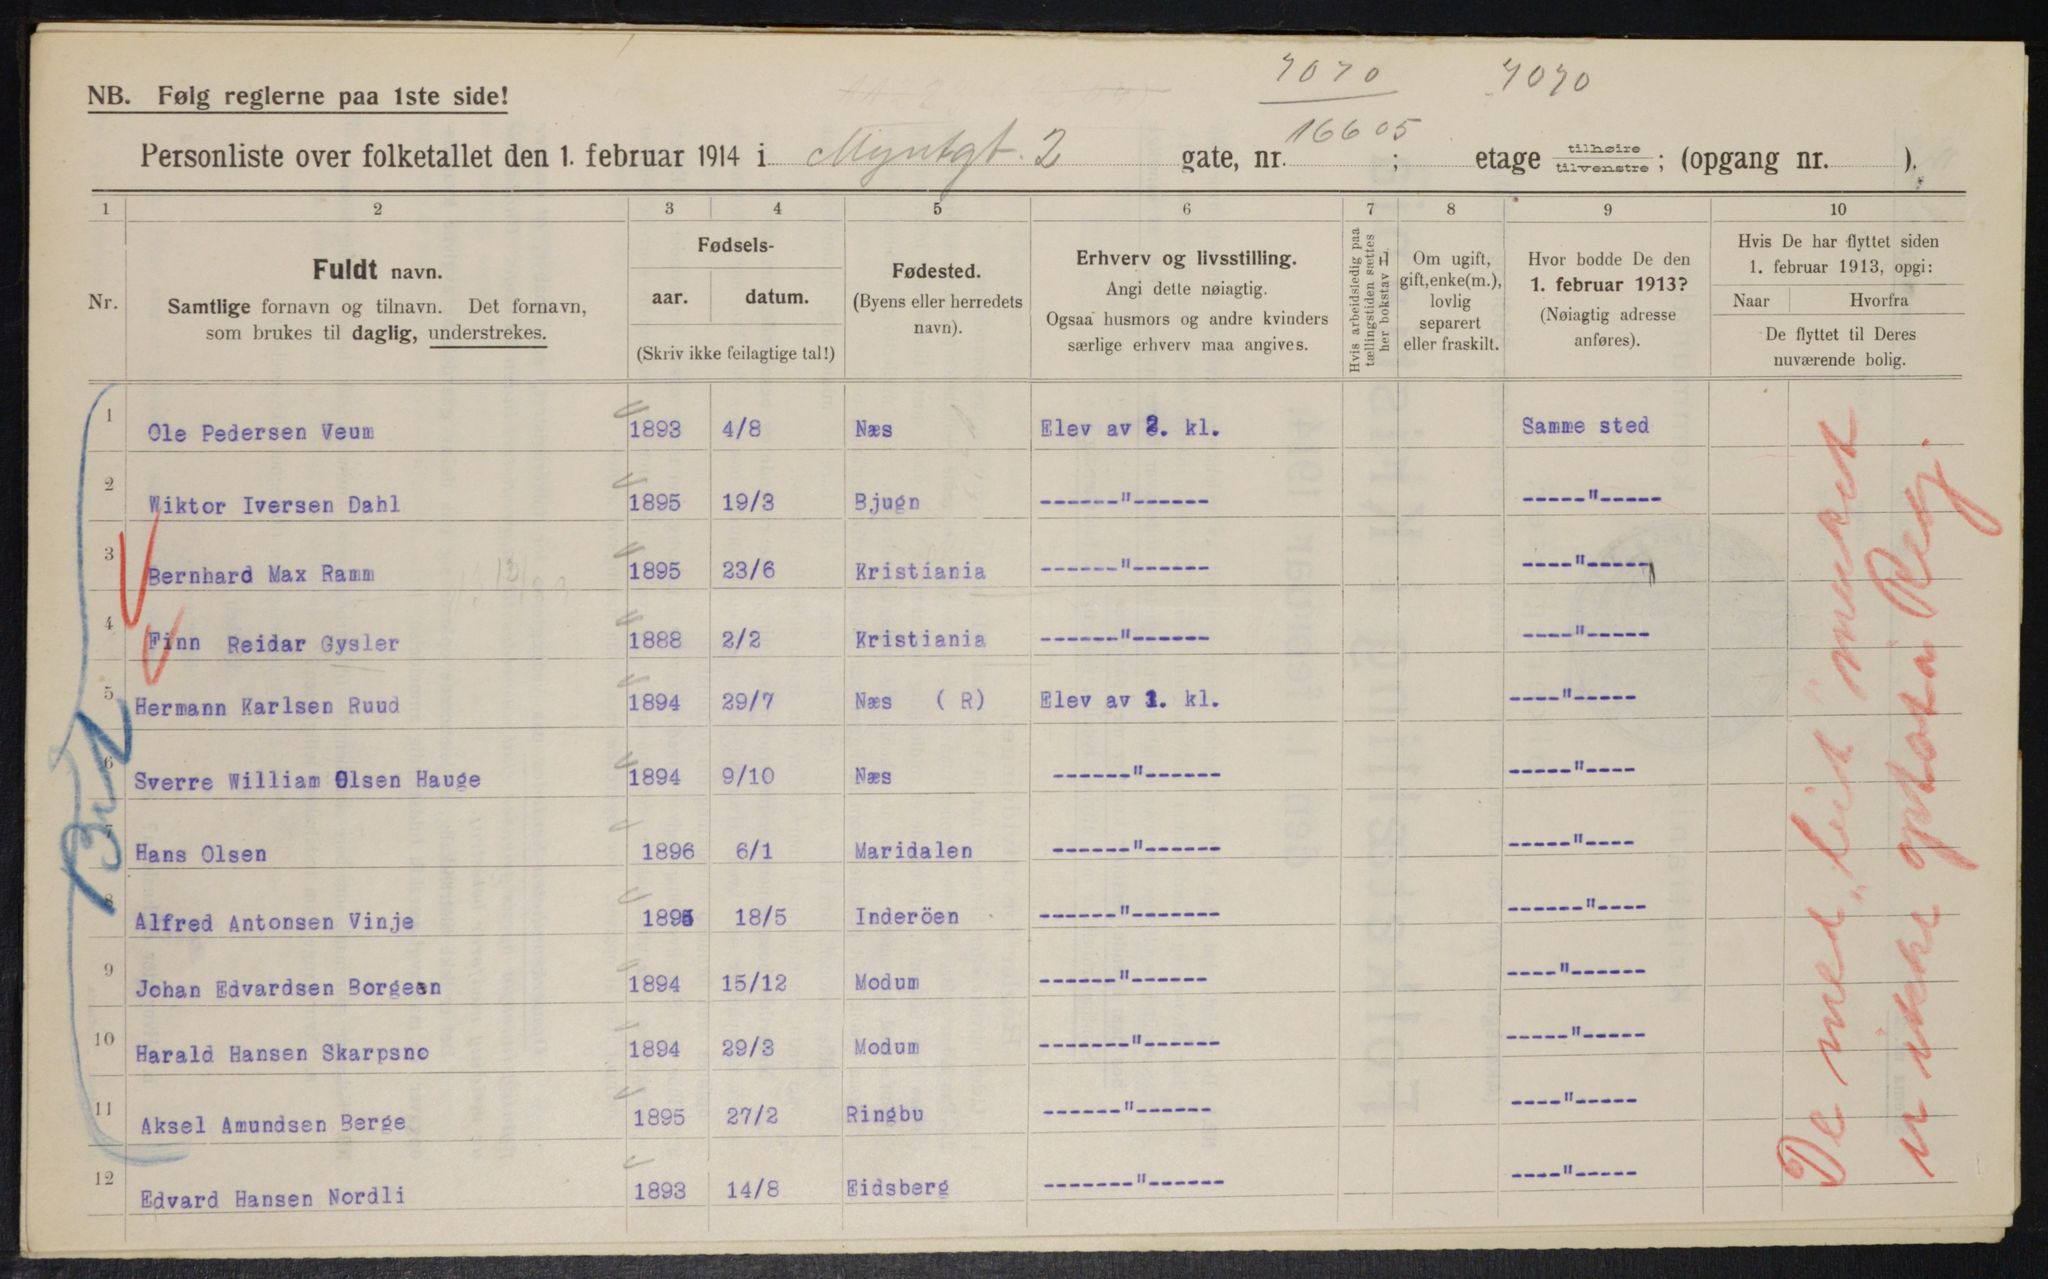 7070 7070
NB. Følg reglerne paa 1ste side!
16605
Personliste over folketallet den 1. februar 1914 i Myntgt. 2 gate, nr. ; etage tilhøire tilvenstre ; (opgang nr. ).
1 2 3 4 5 6 7 8 9 10
Nr.
Fuldt navn.
Samtlige fornavn og tilnavn. Det fornavn,
som brukes til daglig, understrekes.
Fødsels-
aar. datum.
(Skriv ikke feilagtige tal!)
Fødested.
(Byens eller herredets
navn).
Erhverv og livsstilling.
Angi dette nøiagtig.
Ogsaa husmors og andre kvinders
særlige erhverv maa angives.
Hvis arbeidsledig paa
tællingstiden sættes
her bokstav L.
Om ugift,
gift, enke(m.),
lovlig
separert
eller fraskilt.
Hvor bodde De den
1. februar 1913?
(Nøiagtig adresse
anføres).
Hvis De har flyttet siden
1. februar 1913, opgi:
Naar Hvorfra
De flyttet til Deres
nuværende bolig.
1 Ole Pedersen Veum 1893 4/8 Næs Elev av 2. kl. Samme sted
2 Wiktor Iversen Dahl 1895 19/3 Bjugn ------"------ -----"-----
3 Bernhard Max Ramm 1895 23/6 Kristiania ------"------ ----"-----
4 Finn Reidar Gysler 1888 2/2 Kristiania ------"------ ----"-----
5 Hermann Karlsen Ruud 1894 29/7 Næs (R) Elev av 1. kl. ----"-----
6 Sverre William Olsen Hauge 1894 9/10 Næs ------"------ -----"----
7 Hans Olsen 1896 6/1 Maridalen ------"------ -----"----
8 Alfred Antonsen Vinje 1895 18/5 Inderöen ------"------- ------"----
9 Johan Edvardsen Borgean 1894 15/12 Modum ------"------ ----"------
10 Harald Hansen Skarpsno 1894 29/3 Modum -------"------ -----"-----
11 Aksel Amundsen Berge 1895 27/2 Ringbu ------"------ ----"-----
12 Edvard Hansen Nordli 1893 14/8 Eidsberg -------"------ ----"-----
De med "bit" merket
er ikke optat i Reg.